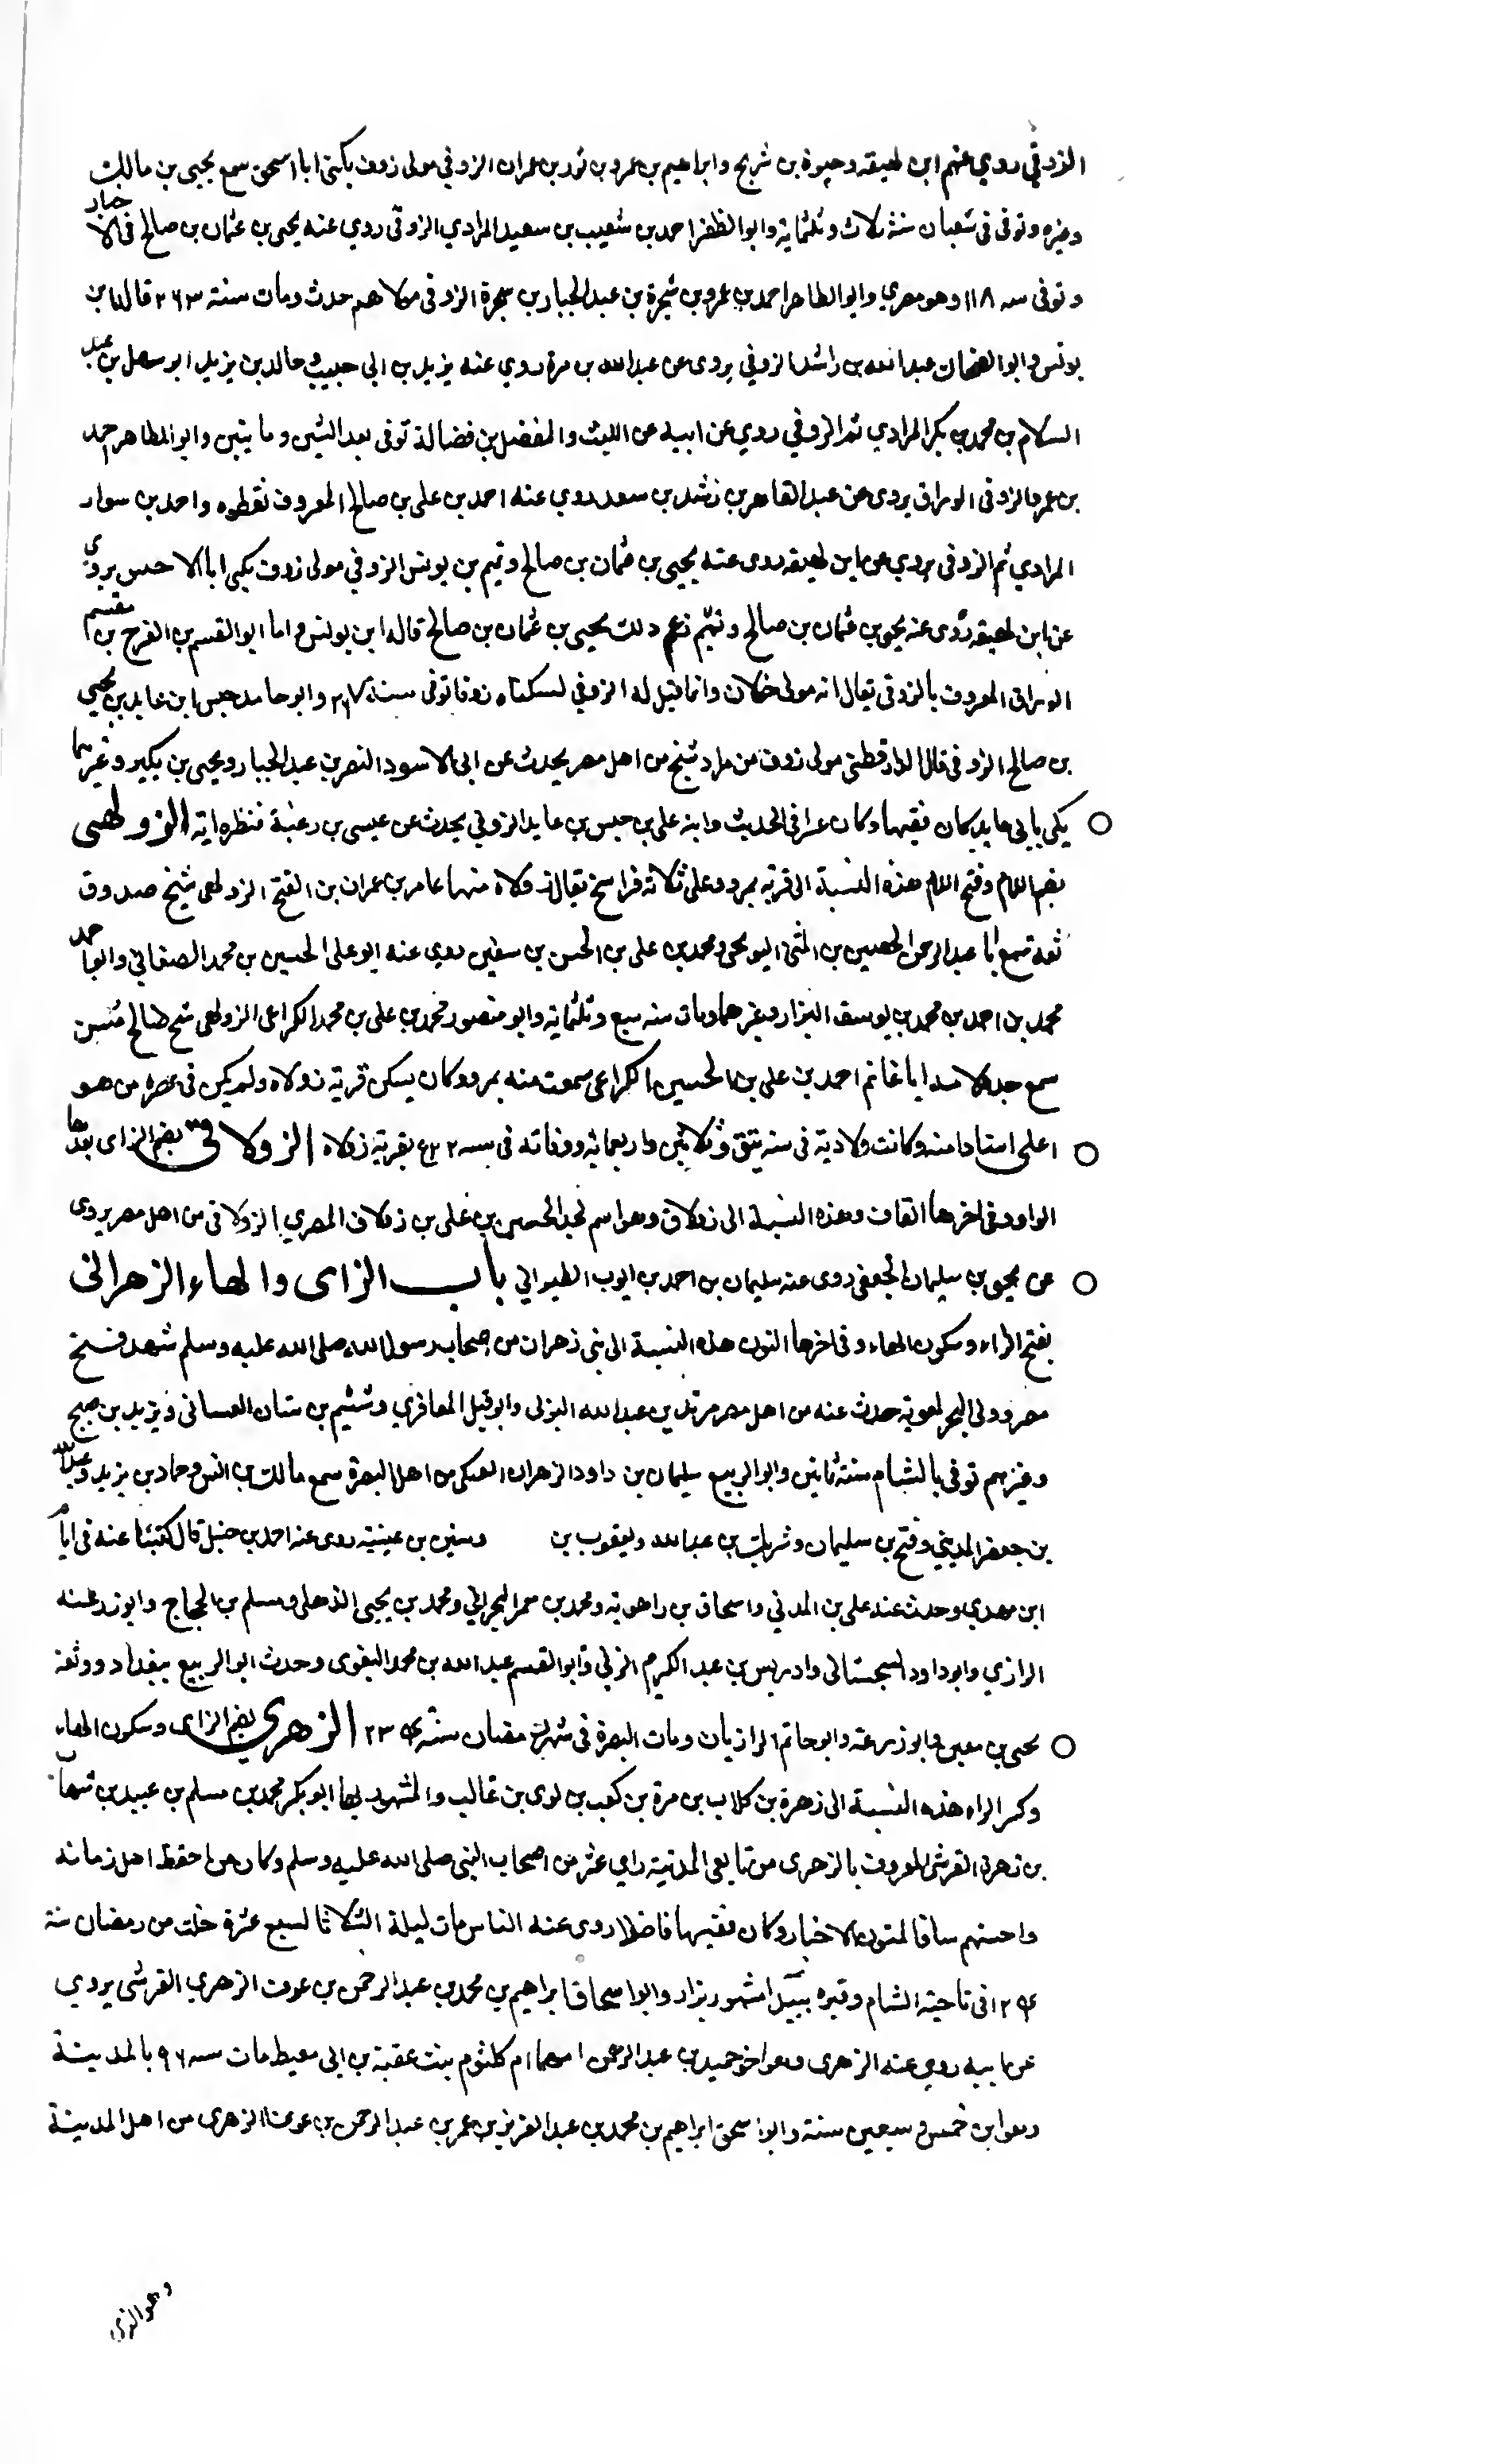 الزوفي روي عنهم ابن لهيعه وحيوة بن شريح وابراهيم بن عمرو بن ثور بن عمران الزوفي مولى زوف يكنى ابا اسحق سمع يحيى بن مالك
وغيره وتوفى فى شعبان سنة ثلاث وثلثماية وابوالظفر احمد بن شعيب بن سعيد المرادي الزوفى روي عنه يحيى بن عثمان بن صالح فى الاخبار
وتوفى سه ١١٨ وهو مصري وابو الطاهر احمد بن عمرو بن شجرة بن عبد الجبار بن شجرة الزوفى مولاهم حدث ومات سنة ٢٦٣ قاله ابن
يونس وابوالضحاك عبد الله بن راشد الزوفي يروى عن عبد الله بن مرة روي عنه يزيد بن ابى حبيب وخالد بن يزيد ابو سهل بن عبد
السلام بن محمد بن بكر المرادي ثم الزوفي روي عن ابيه عن الليث والمفضل بن فضالة توفى بعد الثنين وماتين وابو الطاهر احمد
بن عمر والزوفى الوراق يروى عن عبد القاهر بن رشد بن سعد روي عنه احمد بن على بن صالح المعروف نقطوه واحمد بن سوار
المرادي ثم الزوفى يروي عن ابن لهيعه روى عنه يحيى بن عثمان بن صالح وتميم بن يونس الزوفي مولى زوف يكنى ابا الاحبس يروى
عن ابن لهيعه روى عنه يحيى بن عثمان بن صالح وتميم زعم ذلك يحيى بن عثمان بن صالح قاله ابن يونس واما ابو القسم بن الفرج بن مقسم
الوراق المعروف بالزوفى يقال انه مولى خولان وانما قيل له الزوفي لسكناه زوفا توفى سنة وابو حامد حبس ابن عايد بن يحيى
بن صالح الزوفى قال الدارقطنى مولى زوف من مراد شيخ من اهل مصر يحدث عن ابى الاسود النضر بن عبد الجبار ويحيى بن بكير وغيرهما
يكنى بابى عايد كان فقيها وكان عسرا فى الحديث وابنه على بن حبس بن عايد الزوفي يحدث عن عيسى بن زغبة الزولهى
بضم اللام وفتح اللام هذه النسبة الى قرية بمرو وعلى ثلاثة فراسخ يقال لها زولاه منها عامر بن عمران بن الفتح الزولهى شيخ صدوق
ثقة سمع ابا عبد الرحمن الحصين بن المثنى ومحمد بن على بن الحسن بن سفين روي عنه ابو على الحسين بن محمد الصغانى وابو احمد
محمد بن احمد بن محمد بن يوسف البزار وغيرهما ومات سنه سبع وثلثماية وابو منصور محمد بن على بن محمد الكراعى الزولهى شيخ صالح مسن
سمع جده لامه ابا غانم احمد بن على بن الحسين الكراعى سمعت منه بمرو وكان يسكن قرية زولاه ولم يكن فى عصره من هو
اعلى اسنادا منه وكانت ولادته فى سنه وثلاثين واربعمائه ووفاته فى سه بقرية زولاه الزولاقى بضم الزاى بعدها
الواو وفى اخرها القاف وهذه النسبة الى زولاق وهو اسم لجد الحسن بن على بن زولاق المصري الزولاقى من اهل مصر يروى
عن يحيى بن سليمان الجعفى روى عنه سليمان بن احمد بن ايوب الطبراني باب الزاى والهاء الزهرانى
بفتح الراء وسكون الهاء وفى اخرها النون هذه النسبة الى بنى زهران من اصحاب رسول الله صلى الله عليه وسلم شهد فتح
مصر وولى البحر لمعوية حدث عنه من اهل مصر مرثد بن عبد الله اليزنى وابو قبيل المعافرى وشييم بن بيتان الغسانى ويزيد بن صبح
وغيرهم توفى بالشام سنة ثمانين وابو الربيع سليمان بن داود الزهرانى العتكى من اهل البصرة سمع مالك بن انس وحماد بن يزيد وعبد الله
بن جعفر المدينى وفليح بن سليمان وشريك بن عبد الله ويعقوب بن وسفين بن عيينة روى عنه احمد بن حنبل قال كتبنا عنه فى ايام
ابن مهدي وحدث عنه على بن المدنى واسحاق بن راهويه ومحمد بن معمر البحرانى ومحمد بن يحيى الذهلى ومسلم بن الحجاج وابو زرعة
الرازي وابو داود السجستانى وادريس بن عبد الكريم وابو القسم عبد الله بن محمد البغوى وحدث ابو الربيع ببغداد ووثقه
يحيى بن معين وابو زرعة وابو حاتم الرازيان ومات البصرة فى شهر رمضان سنة الزهري بضم الزاى وسكون الهاء
وكسر الراء هذه النسبة الى زهرة بن كلاب بن مرة بن كعب بن لوى بن غالب والمشهور بها ابو بكر محمد بن مسلم بن عبيد بن شهاب
بن زهرة القرشى المعروف بالزهرى من تابعى المدينة راى عشر من اصحاب النبى صلى الله عليه وسلم وكان من احفظ اهل زمانه
واحسنهم سياقا لمتون الاخبار وكان فقيها فاضلا روى عنه الناس مات ليلة الثلاثا لسبع عشرة خلت من رمضان سنة
١٢٤ فى ناحية الشام وقبره مشهور يزار وابو اسحاق ابراهيم بن محمد بن عبد الرحمن بن عوف الزهري القرشى يروى
عن ابيه روي عنه الزهرى وهو اخو حميد بن عبد الرحمن امهما ام كلثوم بنت عقبة بن ابى معيط مات سه ٩٦ بالمدينة
وهو ابن خمس وسبعين سنة وابو اسحق ابراهيم بن محمد بن عبد العزيز بن عمر بن عبد الرحمن بن عوف الزهرى من اهل المدينة
وهو الذى